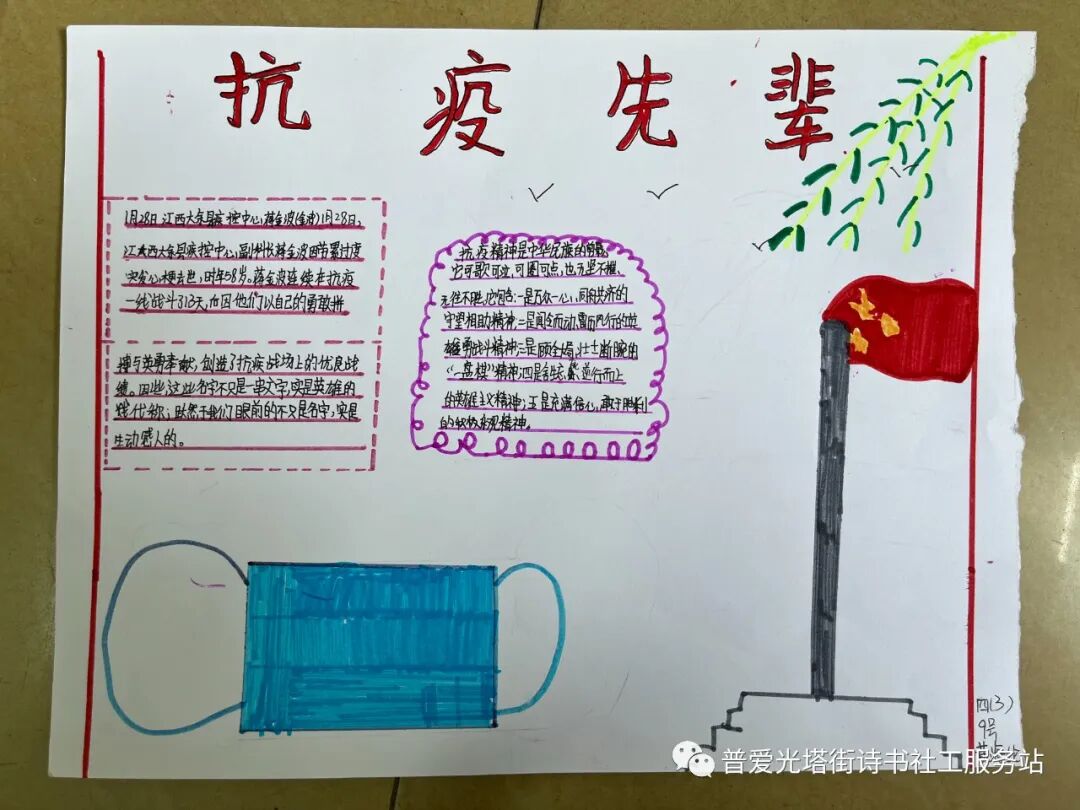 抗疫先辈
1月28日 江西大余县疾控中心蒋金波(金波)1月28日、
江西大余县疾控中心,副科长蒋金波因劳累过度
突发心梗去世,时年58岁。蒋金波连续在抗疫
一线战斗313天,也因他们以自己的勇敢拼
搏与英勇奉献,创造了抗疾战场上的优良战
绩。因些,这些名字不只是一串文字,实是英雄的
代称;跃然于我们眼前的不只是名字,实是
生动感人的。
抗疫精神是中华民族的
它可歌可泣,可圈可点,也万坚不摧、
无往不胜,它包含:一是万众一心、同舟共济的
守望相助精神;二是闻令而动、雷厉风行的英
雄勇战斗精神;三是顾全局、壮士断腕的
“一盘棋”精神;四是舍生忘死、逆行而上
的英雄主义精神;五是充满信心,敢于胜利
的积极乐观精神。
四(3)
9号
普爱光塔街诗书社工服务站